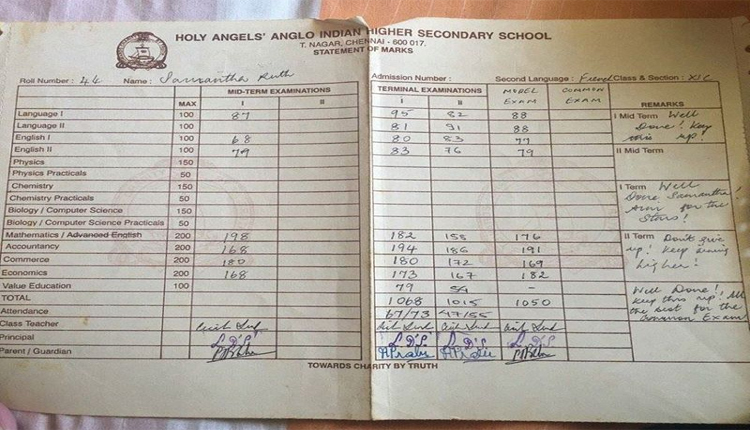 HOLY ANGELS' ANGLO INDIAN HIGHER SECONDARY SCHOOL
T. NAGAR, CHENNAI - 600 017.
STATEMENT OF MARKS
Roll Number : 44 Name : Samantha Ruth Admission Number : Second Language : French Class & Section : XI C
MID-TERM EXAMINATIONS TERMINAL EXAMINATIONS MODEL EXAM COMMON EXAM REMARKS
MAX I II I II
Language I 100 87 95 82 88
Language II 100 81 91 88
English I 100 68 80 83 77
English II 100 79 83 76 79
Physics 150
Physics Practicals 50
Chemistry 150
Chemistry Practicals 50
Biology / Computer Science 150
Biology / Computer Science Practicals 50
Mathematics / Advanced English 200 198 182 158 176
Accountancy 200 168 194 186 191
Commerce 200 180 180 172 169
Economics 200 168 173 167 182
Value Education 100 79 54 -
TOTAL 1068 1015 1050
Attendance 67/73 47/55
Class Teacher
Principal
Parent / Guardian
I Mid Term Well
Done! Keep
this up!
II Mid Term
I Term Well
Done Samantha!
Aim for the
Stars!
II Term Don't give
up! Keep aiming
higher!
Well Done!
Keep this up! All
the best for the
Common Exam
TOWARDS CHARITY BY TRUTH